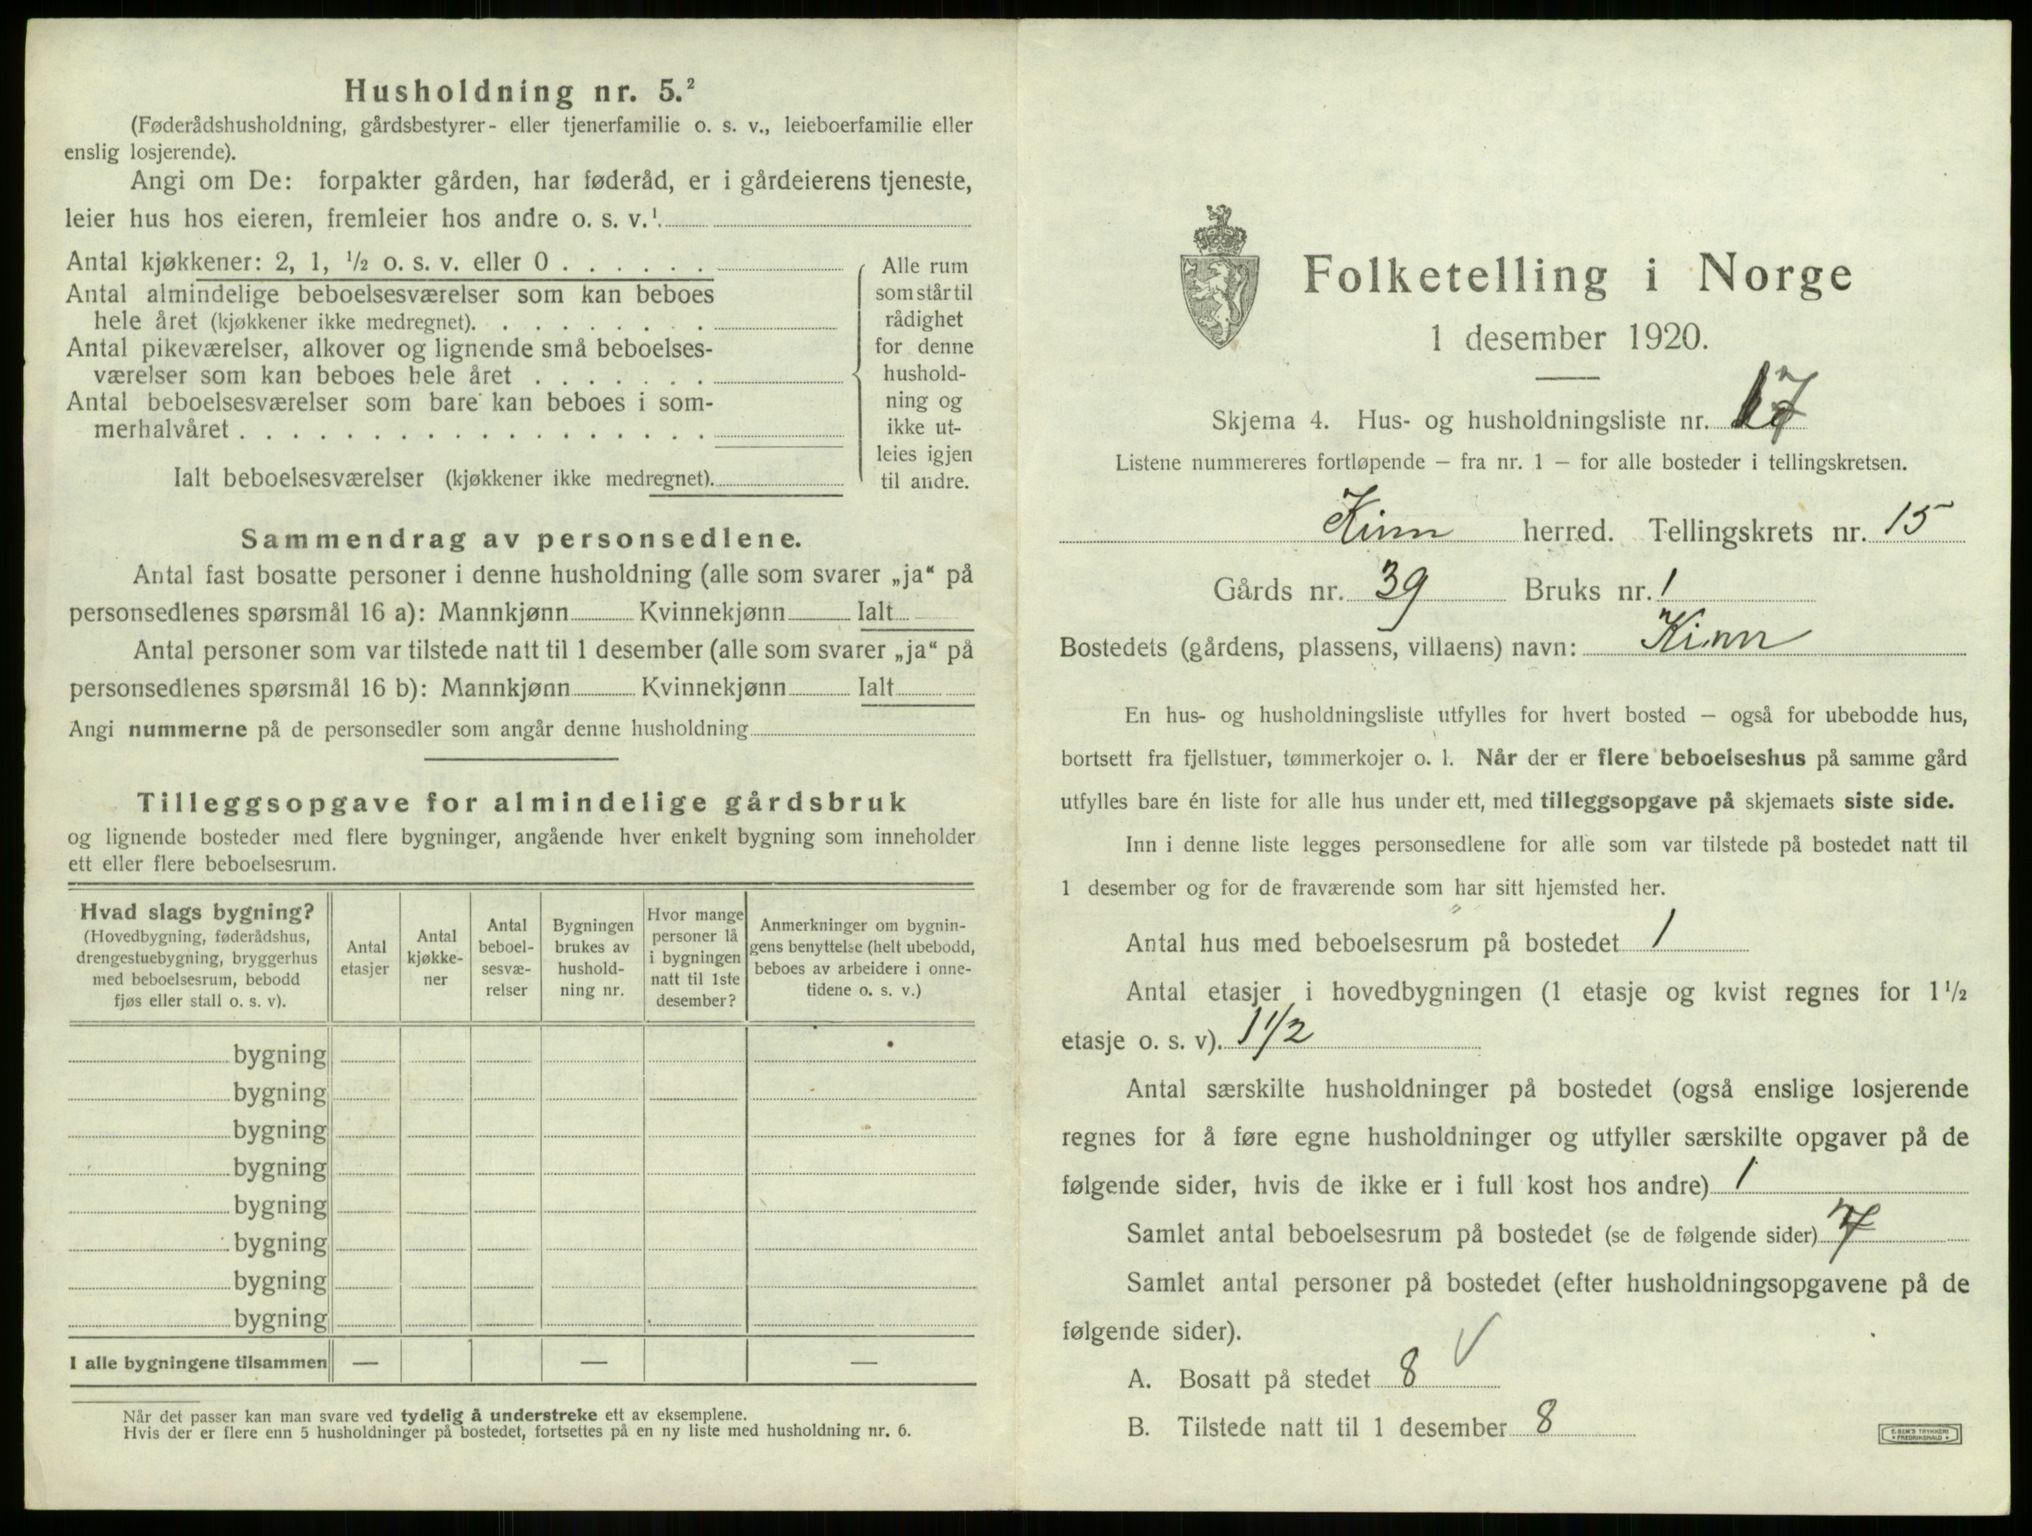 Husholdning nr. 5.²
(Føderådshusholdning, gårdsbestyrer- eller tjenerfamilie o. s. v., leieboerfamilie eller
enslig losjerende).
Angi om De: forpakter gården, har føderåd, er i gårdeierens tjeneste,
leier hus hos eieren, fremleier hos andre o. s. v.¹
Antal kjøkkener: 2, 1, ½ o. s. v. eller 0 . . . . . .
Antal almindelige beboelsesværelser som kan beboes
hele året (kjøkkener ikke medregnet). . . . . . . . .
Antal pikeværelser, alkover og lignende små beboelses-
værelser som kan beboes hele året . . . . . . .
Antal beboelsesværelser som bare kan beboes i som-
merhalvåret . . . . . . . . . . . . . . . . . .
Ialt beboelsesværelser (kjøkkener ikke medregnet).
Alle rum
som står til
rådighet
for denne
hushold-
ning og
ikke ut-
leies igjen
til andre.
Sammendrag av personsedlene.
Antal fast bosatte personer i denne husholdning (alle som svarer „ja“ på
personsedlenes spørsmål 16 a): Mannkjønn Kvinnekjønn Ialt
Antal personer som var tilstede natt til 1 desember (alle som svarer „ja“ på
personsedlenes spørsmål 16 b): Mannkjønn Kvinnekjønn Ialt
Angi nummerne på de personsedler som angår denne husholdning
Tilleggsopgave for almindelige gårdsbruk
og lignende bosteder med flere bygninger, angående hver enkelt bygning som inneholder
ett eller flere beboelsesrum.
Hvad slags bygning?
(Hovedbygning, føderådshus,
drengestuebygning, bryggerhus
med beboelsesrum, bebodd
fjøs eller stall o. s. v).
Antal
etasjer
Antal
kjøkke-
ner
Antal
beboel-
sesvæ-
relser
Bygningen
brukes av
hushold-
ning nr.
Hvor mange
personer lå
i bygningen
natt til 1ste
desember?
Anmerkninger om bygnin-
gens benyttelse (helt ubebodd,
beboes av arbeidere i onne-
tidene o. s. v.)
bygning
bygning
bygning
bygning
bygning
bygning
bygning
bygning
I alle bygningene tilsammen — — —
Når det passer kan man svare ved tydelig å understreke ett av eksemplene.
Hvis der er flere enn 5 husholdninger på bostedet, fortsettes på en ny liste med husholdning nr. 6.
Folketelling i Norge
1 desember 1920.
Skjema 4. Hus- og husholdningsliste nr. 17
Listene nummereres fortløpende — fra nr. 1 — for alle bosteder i tellingskretsen.
Kinn herred. Tellingskrets nr. 15
Gårds nr. 39 Bruks nr. 1
Bostedets (gårdens, plassens, villaens) navn: Kinn
En hus- og husholdningsliste utfylles for hvert bosted — også for ubebodde hus,
bortsett fra fjellstuer, tømmerkojer o. l. Når der er flere beboelseshus på samme gård
utfylles bare én liste for alle hus under ett, med tilleggsopgave på skjemaets siste side.
Inn i denne liste legges personsedlene for alle som var tilstede på bostedet natt til
1 desember og for de fraværende som har sitt hjemsted her.
Antal hus med beboelsesrum på bostedet 1
Antal etasjer i hovedbygningen (1 etasje og kvist regnes for 1½
etasje o. s. v). 1½
Antal særskilte husholdninger på bostedet (også enslige losjerende
regnes for å føre egne husholdninger og utfyller særskilte opgaver på de
følgende sider, hvis de ikke er i full kost hos andre) 1
Samlet antal beboelsesrum på bostedet (se de følgende sider) 7
Samlet antal personer på bostedet (efter husholdningsopgavene på de
følgende sider).
A. Bosatt på stedet 8 √
B. Tilstede natt til 1 desember 8
E. SEM'S TRYKKERI
• FREDRIKSHALD •